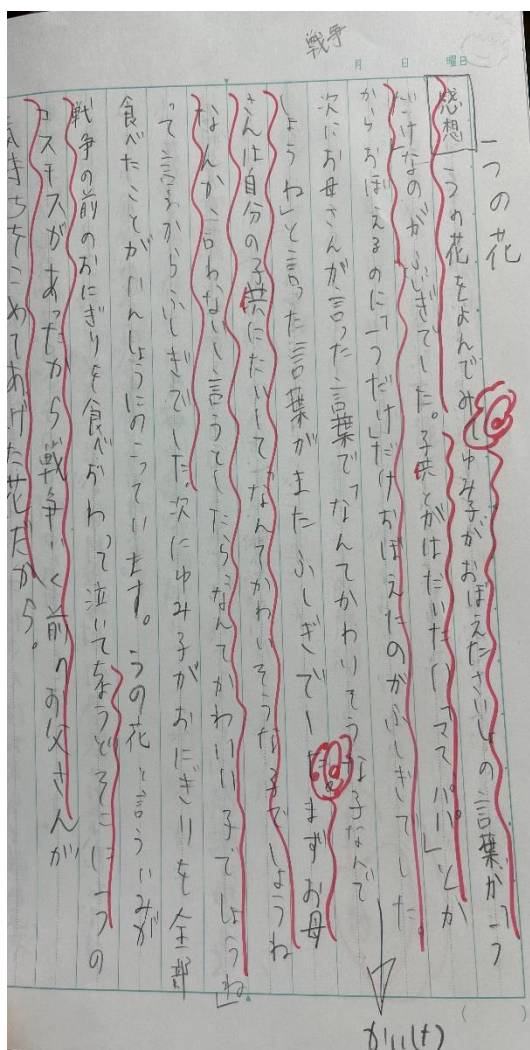 戦争
月 日 曜日
一つの花
感想 一つの花をよんでみてゆみ子がおぼえたさいしょの言葉が「一つ
だけ」なのがふしぎでした。子供とかはだいたい「ママ、パパ」とか
からおぼえるのに「一つだけ」だけおぼえたのがふしぎでした。
次にお母さんが言った言葉で「なんてかわいそうな子なんで
しょうね」と言った言葉がまたふしぎでした。まずお母
さんは自分の子供にたいして「なんてかわいそうな子でしょうね
なんか言わないし言うとしたら「なんてかわいい子でしょうね」
って言うからふしぎでした。次にゆみ子がおにぎりを全部
食べたことがいんしょうにのこっています。一つの花と言ういみが
戦争の前のおにぎりを食べおわって泣いて
コスモスがあったから戦争いく前のお父さんが
気持ちをこめてあげた花だから。